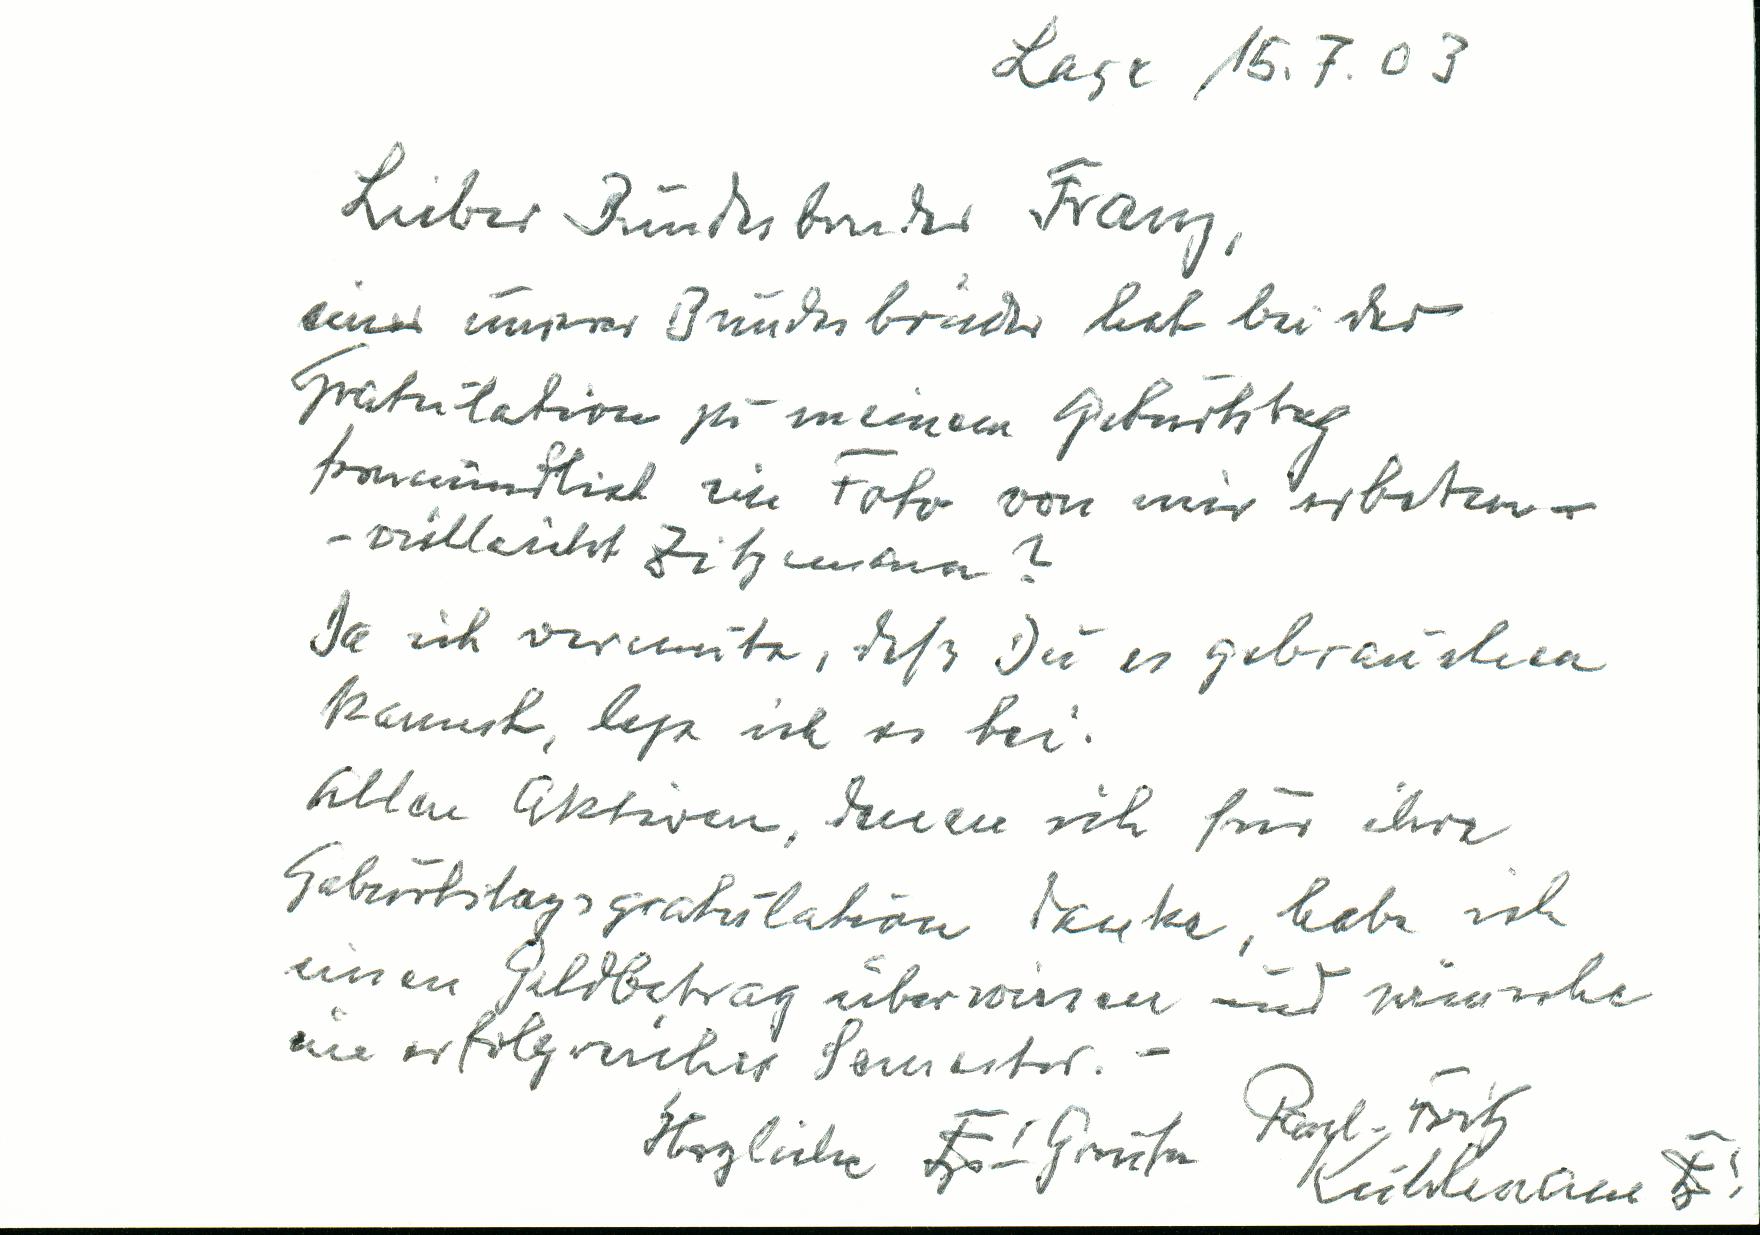 Lage 15.7.03
Lieber Bundesbruder Franz,
einer unserer Bundesbrüder hat bei der
Gratulation zu meinem Geburtstag
ein Foto von mir erbeten -
- vielleicht Zitzmann?
Da ich vermute, daß Du es gebrauchen
kannst, lege ich es bei.
Allen Aktiven, denen ich für ihre
Geburtstagsgratulation danke, habe ich
einen Geldbetrag überwiesen und wünsche
ein erfolgreiches Semester. -
Herzliche Grüße Paul-Fritz
Kuhlemann